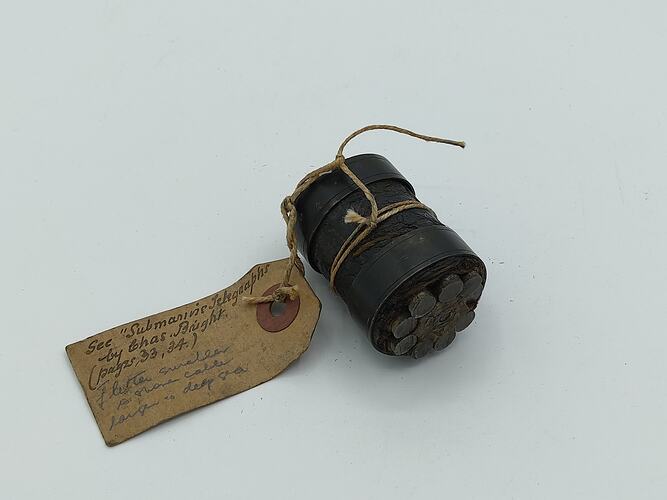 See "Submarine Telegraphs
by Chas. Bright.
(pages, 33, 34.)
smaller
shore cable
larger is deep sea